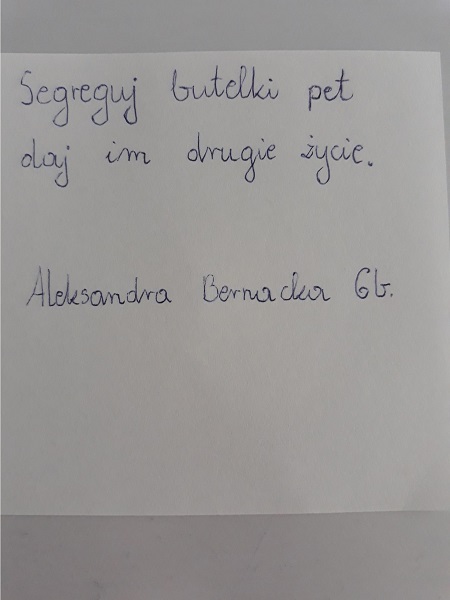 Segreguj butelki pet
daj im drugie życie.
Aleksandra Bernacka 6b.